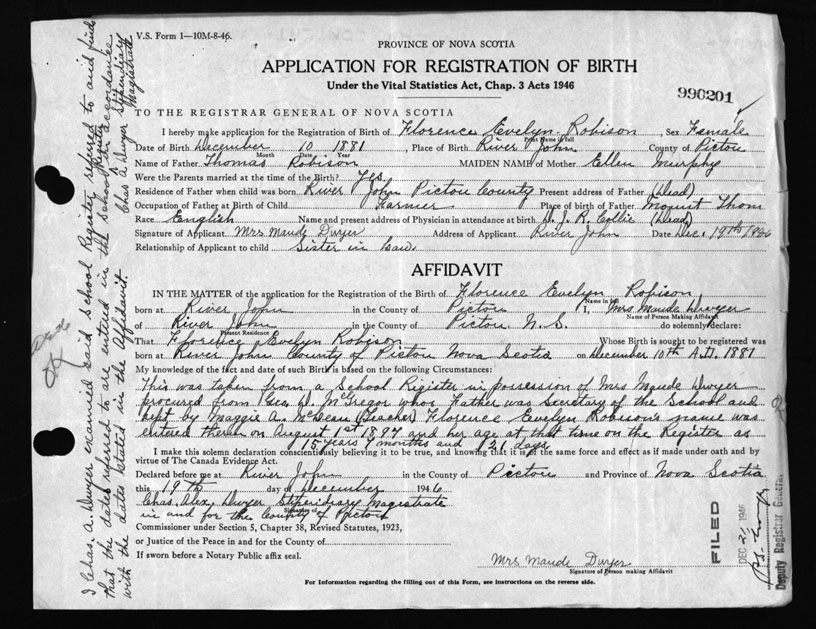 V.S. Form 1—10M-8-46.
PROVINCE OF NOVA SCOTIA
APPLICATION FOR REGISTRATION OF BIRTH
Under the Vital Statistics Act, Chap. 3 Acts 1946
990201
TO THE REGISTRAR GENERAL OF NOVA SCOTIA
I hereby make application for the Registration of Birth of Florence Evelyn Robison Sex Female
Print Name in full
Date of Birth December 10 1881, Place of Birth River John County of Pictou
Month Date Year
Name of Father Thomas Robison MAIDEN NAME of Mother Ellen Murphy
Were the Parents married at the time of the Birth? Yes
Residence of Father when child was born River John Pictou County Present address of Father (dead)
Occupation of Father at Birth of Child Farmer Place of birth of Father Mount Thom
Race English Name and present address of Physician in attendance at birth J. R. Collie (dead)
Signature of Applicant Mrs Maude Dwyer Address of Applicant River John Date Dec. 19th 1946
Relationship of Applicant to child Sister in law
AFFIDAVIT
IN THE MATTER of the application for the Registration of the Birth of Florence Evelyn Robison
Name in full
born at River John in the County of Pictou I, Mrs Maude Dwyer
Name of Person Making Affidavit
of River John in the County of Pictou N.S. do solemnly declare:
Present Residence
That Florence Evelyn Robison Whose Birth is sought to be registered was
born at River John County of Pictou Nova Scotia on December 10th A.D. 1881
My knowledge of the fact and date of such Birth is based on the following Circumstances:
This was taken from a School Register in possession of Mrs Maude Dwyer
procured from Geo. D. McGregor whos Father was Secretary of the School and
kept by Maggie A. McLean (Teacher) Florence Evelyn Robison's name was
entered therein on August 1st 1897 and her age at that time on the Register as
15 years 7 months and 21 days
I make this solemn declaration conscientiously believing it to be true, and knowing that it is of the same force and effect as if made under oath and by
virtue of The Canada Evidence Act.
Declared before me at River John in the County of Pictou and Province of Nova Scotia
this 19th day of December 1946
Chas. Alex. Dwyer Stipendiary Magistrate
in and for the County of Pictou
Signature of
Commissioner under Section 5, Chapter 38, Revised Statutes, 1923,
or Justice of the Peace in and for the County of
If sworn before a Notary Public affix seal.
Mrs Maude Dwyer
Signature of Person making Affidavit
For Information regarding the filling out of this Form, see instructions on the reverse side.
I Chas. A. Dwyer examined said School Register referred to and find
that the dates referred to are entered in the School Register in accordance
with the dates stated in the Affidavit. Chas A. Dwyer Stipendiary
Magistrate
FILED
DEC 21 1946
Deputy Registrar General